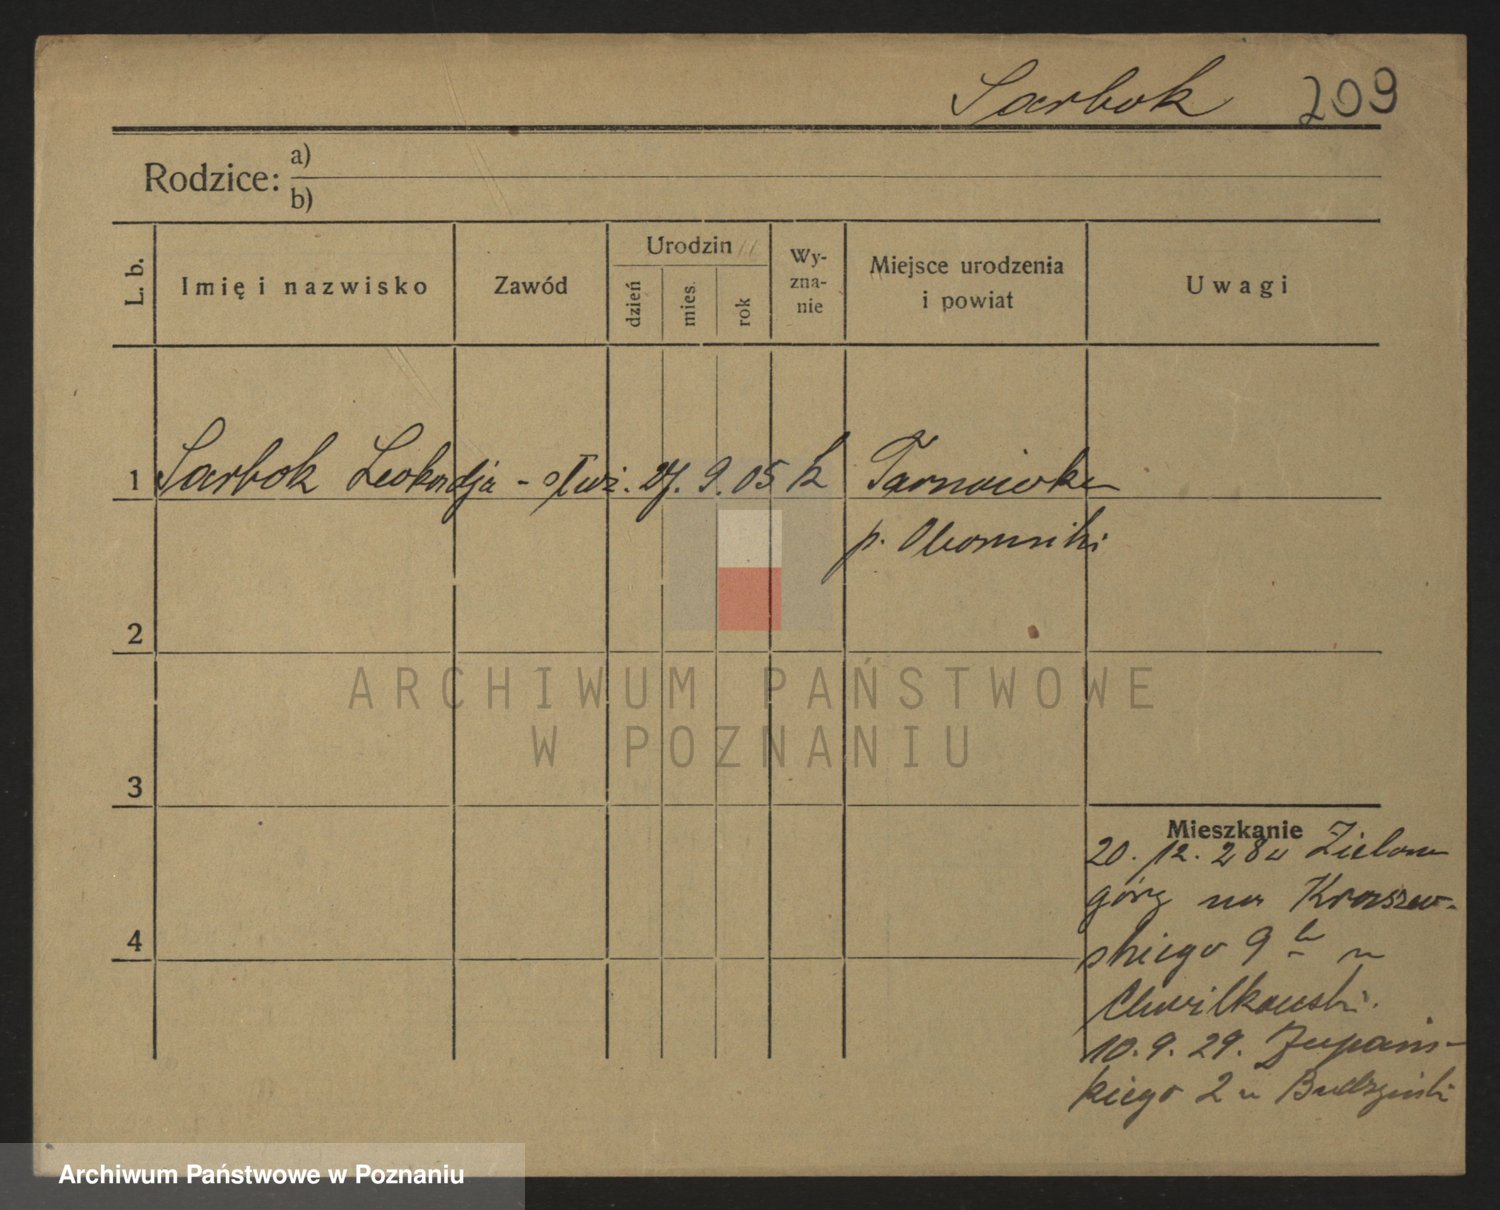 Sarbok 209
Rodzice: a)
b)
L. b. Imię i nazwisko Zawód Urodzin dzień mies. rok Wy-zna-nie Miejsce urodzenia i powiat Uwagi
1 Sarbok Leokadja - służ. 27. 9. 05 k Tarnówko
p. Oborniki
2
ARCHIWUM PAŃSTWOWE
W POZNANIU
3
Mieszkanie
20. 12. 28 u Zielona
górę na Kraszew-
skiego 9 u
Chwilkowski.
10. 9. 29. Żupańs-
kiego 2 u Budzyński
4
Archiwum Państwowe w Poznaniu